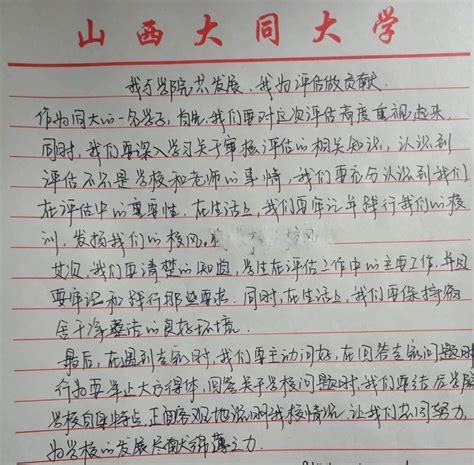 山西大同大学
我与学院共发展,我为评估做贡献
作为同大的一名学子,首先,我们要对这次评估高度重视起来
同时,我们要深入学习关于审核评估的相关知识,认识到
评估不只是学校和老师的事情,我们要充分认识到我们
在评估中的重要性.在生活上,我们要牢记并践行我们的校
训,发扬我们的校风.
其次,我们要清楚的知道,学生在评估工作中的主要工作,并且
要牢记和践行那些要求.同时,在生活上,我们要保持宿
舍干净整洁的良好环境.
最后,在遇到专家时,我们要主动问好,在回答专家问题时
行为要举止大方得体,回答关于学校问题时,我们要结合学院
学校自身特点,正面客观地说明我校情况,让我们共同努力,
为学校的发展尽献绵薄之力.